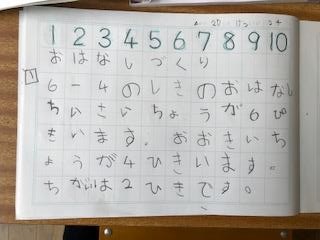 1 2 3 4 5 6 7 8 9 10
おはなしづくり
1
6-4のしきのおはなし
ちいさいちょうが6ぴ
きいます。おおきいち
ょうが4ひきいます。
ちがいは2ひきです。